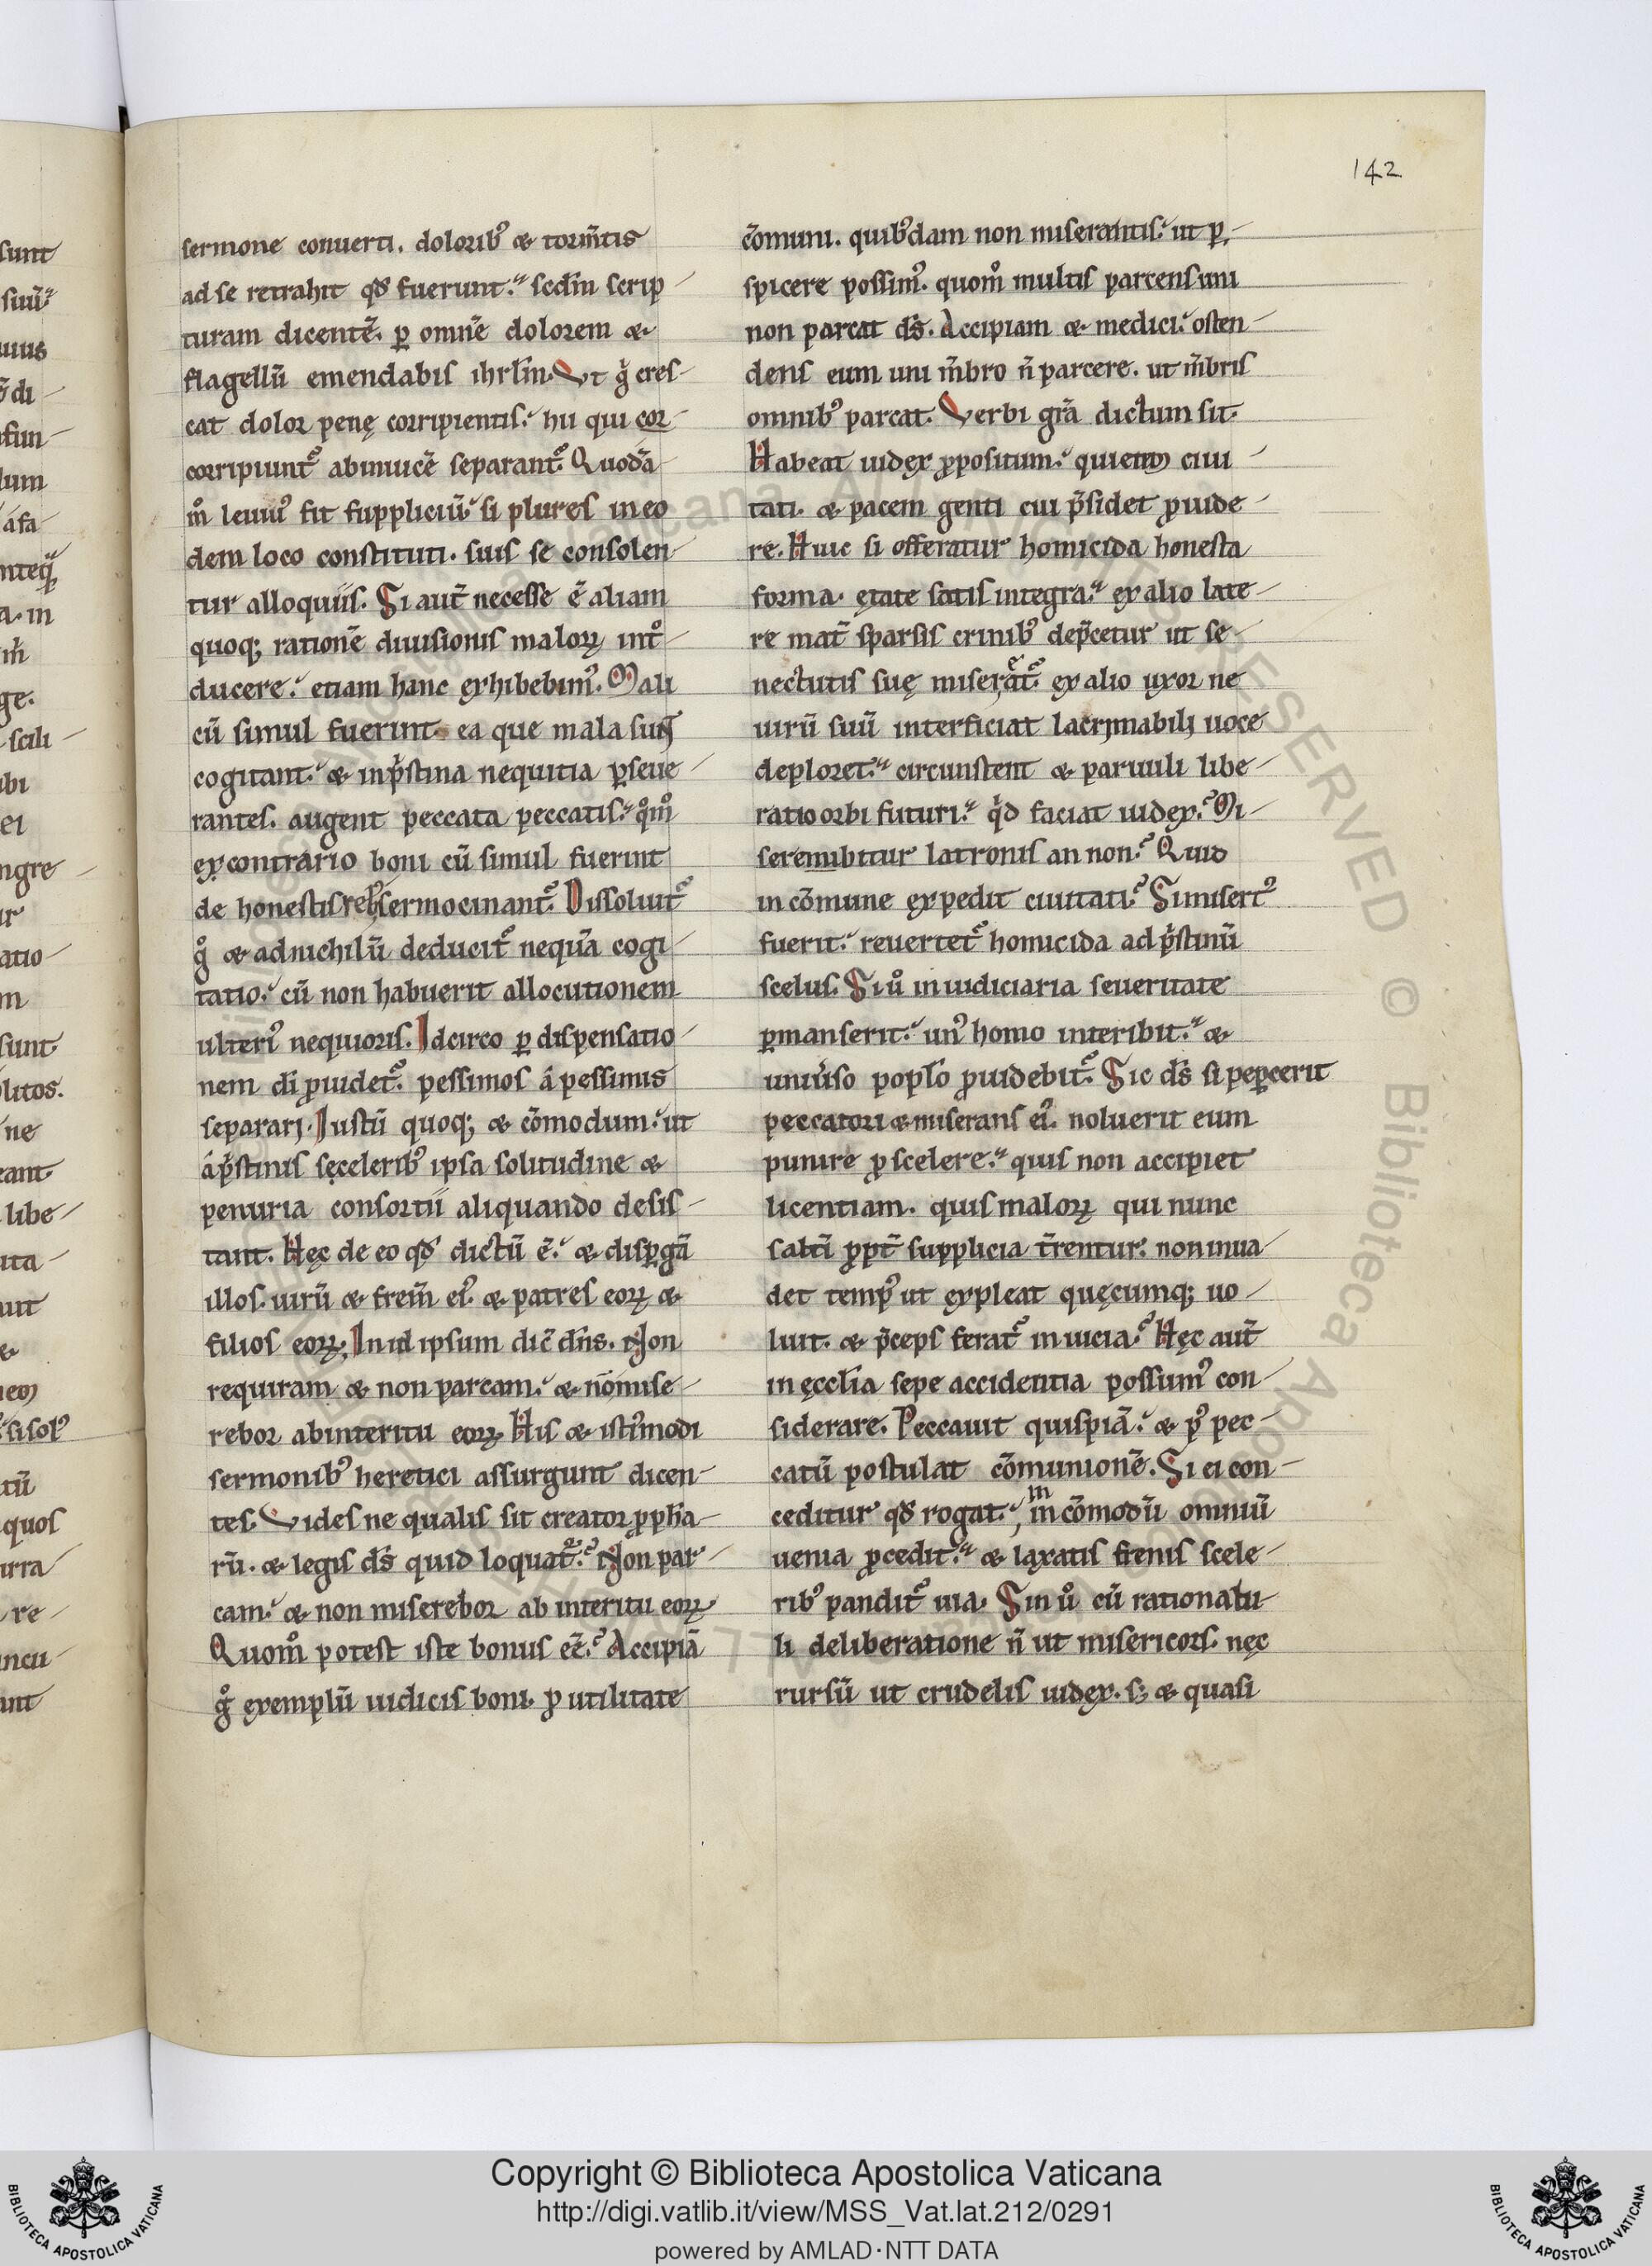 142
sermone conuerti. dolorib᷒ & torm̄tis
ad se retrahit qd̄ fuerunt. scd̄m scrip
turam dicentē. ꝑ omnē dolorem &
flagellū emendabis ihrlm̄. Vt g̊ cres
cat dolor penę corripientis. hii qui cor
corripiunt᷒ abinuicē separant᷒. Quodā
m̊ leuiu᷒ fit suppliciū. si plures in eo
dem loco constituti. suis se consolen
tur alloquiis. Si aut̄ necesse ē aliam
quoq; rationē diuisionis maloꝝ int̊
ducere. etiam hanc exhibebim᷒. Mali
cū simul fuerint ea que mala sunt
cogitant. & in pͥstina nequitia ꝑseue
rantes. augent peccata peccatis. qm̊
ex contrario boni cū simul fuerint
de honestis reb᷒ sermocinant᷒. Dissoluit᷒
g̊ & ad nichilū deducit᷒ nequā cogi
tatio. cū non habuerit allocutionem
ulteri᷒ nequioris. Idcirco ꝑ dispensatio
nem di̅ ꝓuidet᷒. pessimos á pessimis
separari. Iustū quoq; & cōmodum. ut
á pͥstinis sęcelerib᷒ ipsa solitudine &
penuria consortii aliquando desis
tant. Hęc de eo qd̄ dictū ē. & dispgā
illos. uirū & frem̄ ei᷒. & patres eoꝝ &
filios eoꝝ; In id ipsum dic̄ dn̄s. Non
requiram & non parcam. & nōmise
rebor abinteritu eoꝝ. His & isti᷒modi
sermonib᷒ heretici assurgunt dicen
tes. Vides ne qualis sit creator ꝓpha
rū. & legis ds̄ quid loquat᷒. Non par
cam. & non miserebor ab interitu eoꝝ
Quom̊ potest iste bonus eē. Accipiā
g̊ exemplū iudicis boni. ꝓ utilitate
cōmuni. quib᷒dam non miserantis. ut ꝑ
spicere possim᷒. quom̊ multis parcens uni
non parcat ds̄. Accipiam & medici. osten
dens eum uni m̄bro n̄ parcere. ut m̄bris
omnib᷒ parcat. Verbi grā dictum sit.
Habeat iudex ꝓpositum. quietem ciui
tati. & pacem genti cui p̄sidet ꝓuide
re. Huic si offeratur homicida honesta
forma. ętate satis integra. ex alio late
re mat̄ sparsis crinib᷒ dep̄cetur ut se
nectutis suę miserat᷒. ex alio uxor ne
uirū suū interficiat lacrimabili uoce
deploret. circunstent & paruuli libe
ratio orbi futuri. qͥd faciat iudex. Mi
seremibitur latronis an non. Quid
in cōmune expedit ciuitati. Si misert᷒
fuerit. reuertet᷒ homicida ad pͥstinū
scelus. Si ů in iudiciaria seueritate
ꝑmanserit. un᷒ homo interibit. &
uniuͥso poplo ꝓuidebit᷒. Sic ds̄ si peꝑcerit
peccatori & miserans ei᷒. noluerit eum
punire ꝓ scelere. quis non accipiet
licentiam. quis maloꝝ qui nunc
saltī ꝓpt̄ supplicia t̄rentur. non inua
det temp᷒ ut expleat quęcumq; uo
luit. & p̄ceps ferat᷒ in uicia. Hęc aut̄
in ęccłia sepe accidentia possum᷒ con
siderare. Peccauit quispiā. & p᷒ pec
catū postulat cōmunionē. Si ei con
ceditur qd̄ rogat. in cōmodū omniū
uenia ꝓcedit. & laxatis frenis scele
rib᷒ pandit᷒ uia. Sin ů cū rationabi
li deliberatione n̄ ut misericors. nęc
rursū ut crudelis iudex. s; & quasi
Copyright © Biblioteca Apostolica Vaticana
http://digi.vatlib.it/view/MSS_Vat.lat.212/0291
powered by AMLAD·NTT DATA
BIBLIOTECA APOSTOLICA VATICANA
BIBLIOTECA APOSTOLICA VATICANA